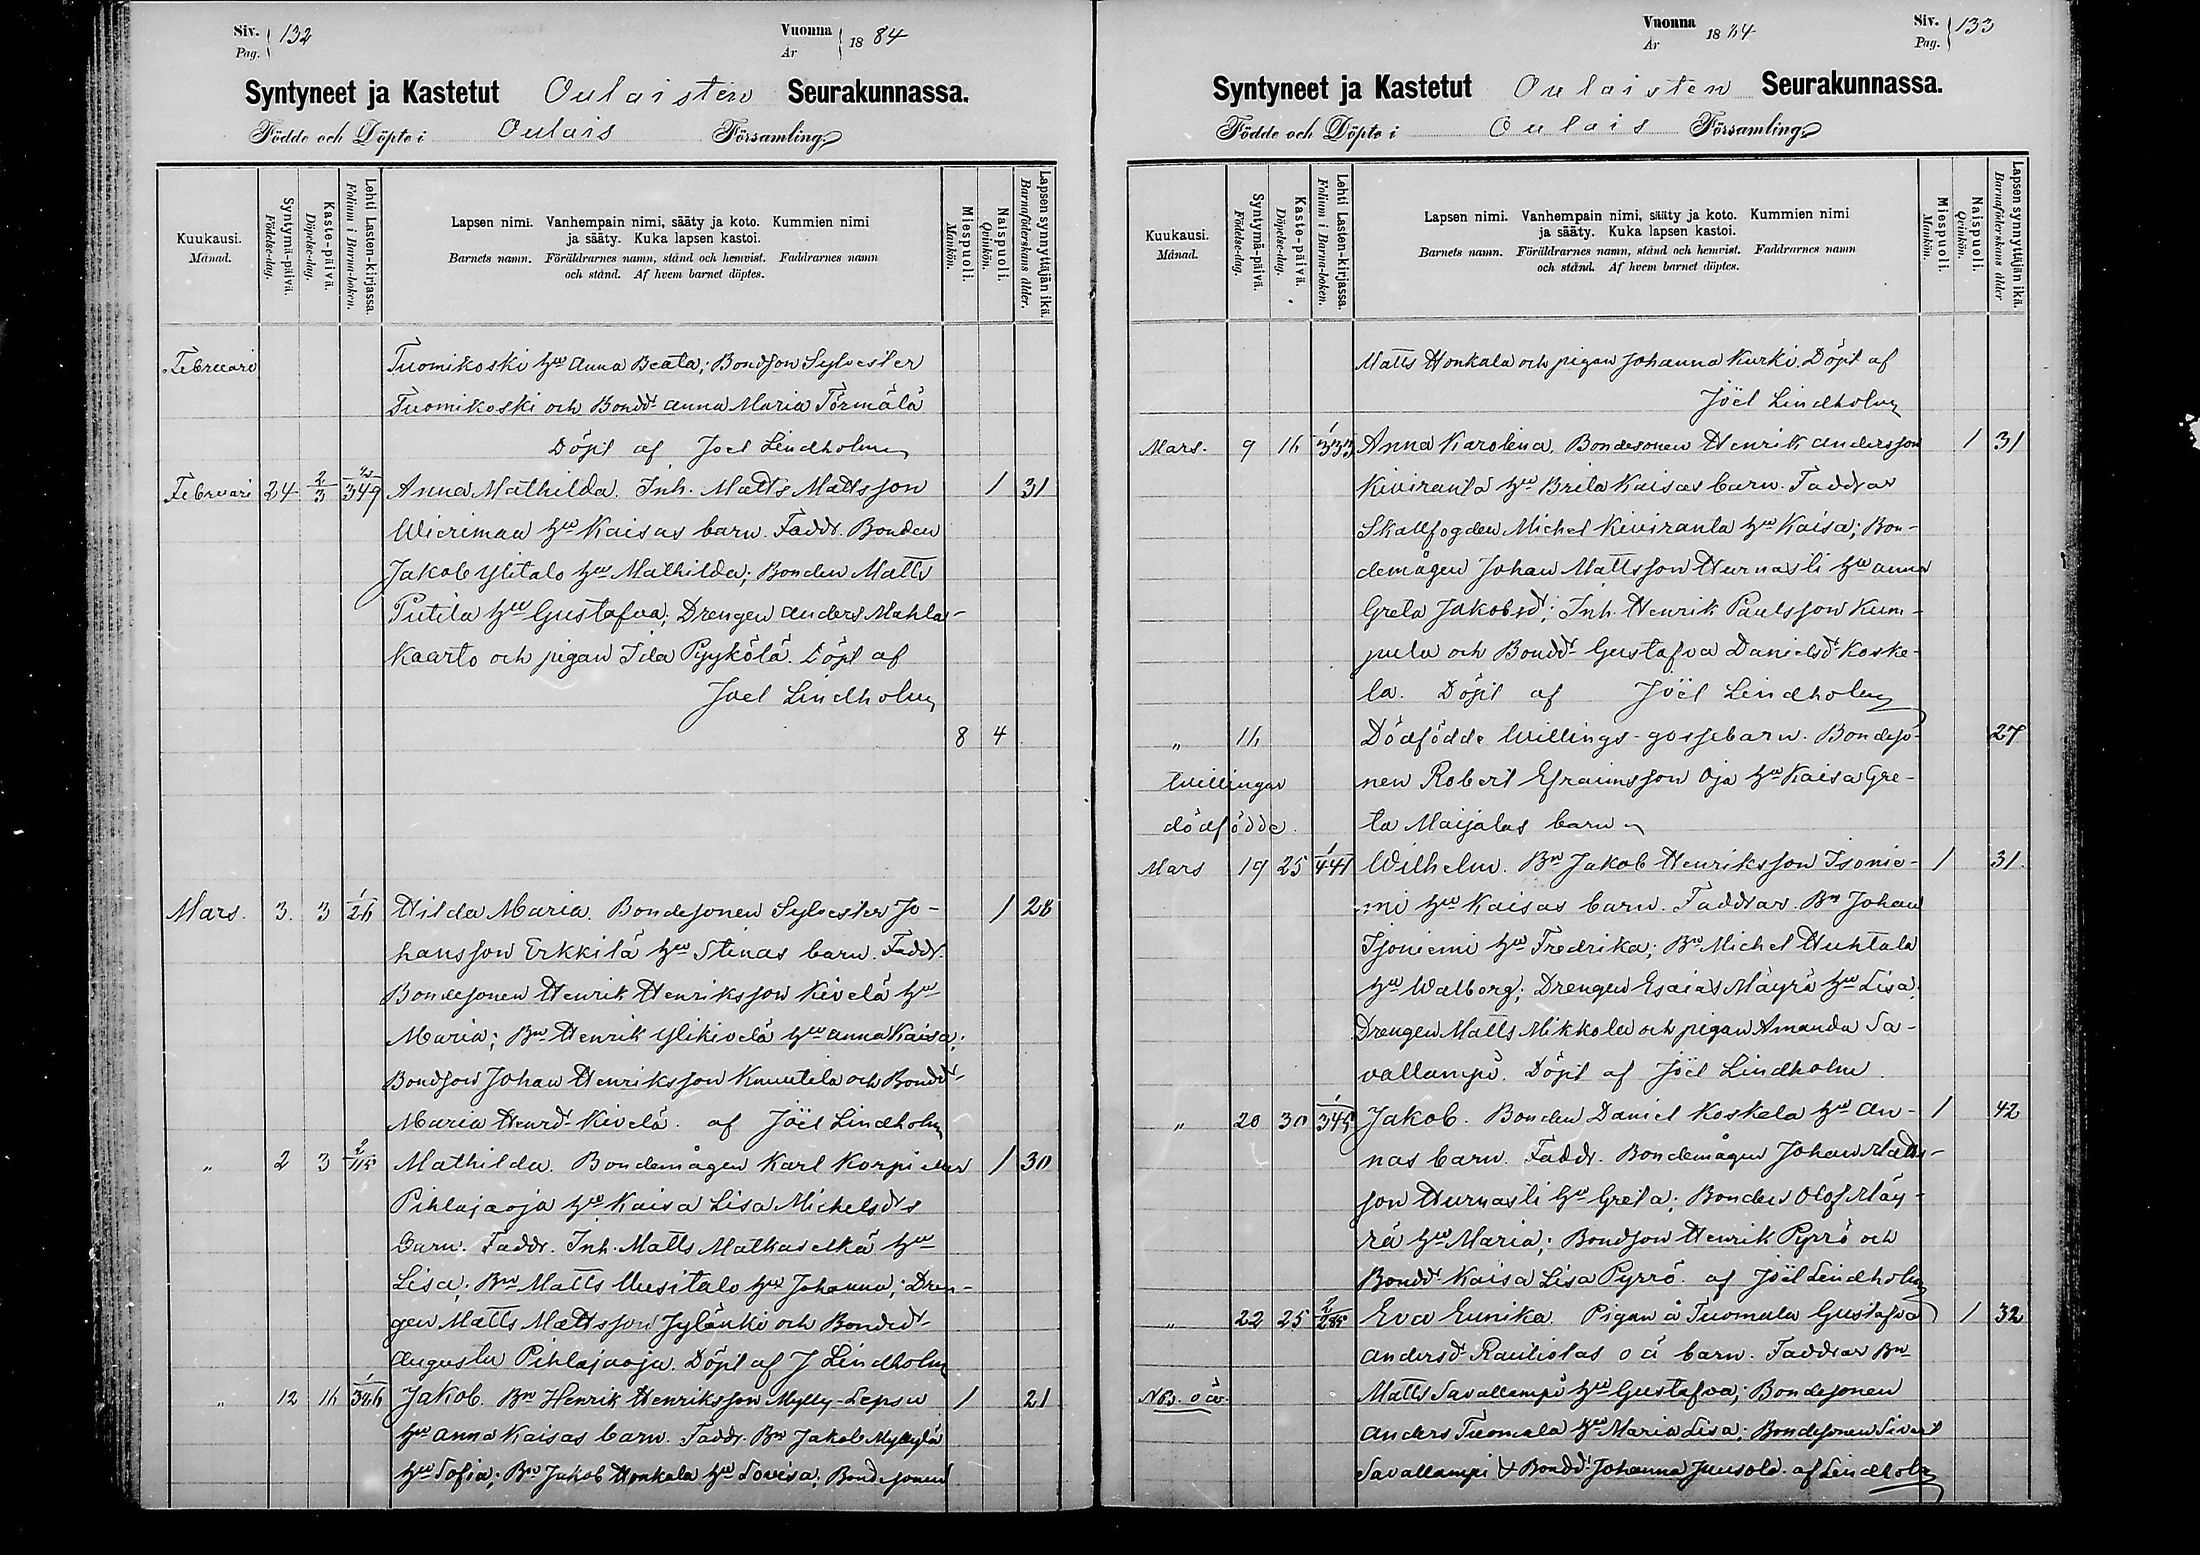 Siv. 132
Pag.
Vuonna 1884
År
Syntyneet ja Kastetut Oulaisten Seurakunnassa.
Födde och Döpte i Oulais Församling
Kuukausi. Månad.
Syntymä-päivä. Födelse-dag.
Kaste-päivä. Döpelse-dag.
Lehti Lasten-kirjassa. Folium i Barna-boken.
Lapsen nimi. Vanhempain nimi, sääty ja koto. Kummien nimi
ja sääty. Kuka lapsen kastoi.
Barnets namn. Föräldrarnes namn, stånd och hemvist. Faddrarnes namn
och stånd. Af hvem barnet döptes.
Miespuoli. Mankön.
Naispuoli. Qvinkön.
Lapsen synnyttäjän ikä. Barnaföderskans ålder.
Februari Tuomikoski hu Anna Beata; Bondson Sylvester
Tuomikoski och Bondd. Anna Maria Törmälä
Döpt af Joel Lindholm
Februari 24 2/3 349 Anna Mathilda. Inh. Matts Mattsson 1 31
Wierimaa hu Kaisas barn. Faddr. Bonden
Jakob Ylitalo hu Mathilda; Bonden Matts
Putila hu Gustafva; Drengen Anders Mahla-
kaarto och pigan Ida Pyykölä. Döpt af
Joel Lindholm
8 4
Mars. 3. 3 1/26 Hilda Maria. Bondesonen Sylvester Jo- 1 28
hansson Erkkilä hu Stinas barn. Faddr.
Bondesonen Henrik Henriksson Kivelä hu
Maria; Bn Henrik Ylikivelä hu Anna Kaisa;
Bondson Johan Henriksson Knuutila och Bondd.
Maria Henrd. Kivelä. af Joël Lindholm
„ 2 3 2/115 Mathilda. Bondemågen Karl Korpi eller 1 30
Pihlajaoja hu Kaisa Lisa Michelsd:s
barn. Faddr. Inh. Matts Matkaselkä hu
Lisa; Bn Matts Uusitalo hu Johanna; Dren-
gen Matts Mattsson Jylänki och Bondd.
Augusta Pihlajaoja. Döpt af J Lindholm
„ 12 16 1/346 Jakob. Bn Henrik Henriksson Mylly-Lepsu 1 21
hu Anna Kaisas barn. Faddr. Bn Jakob Myllylä
hu Sofia; Bn Jakob Honkala hu Lovisa; Bondesonen
Vuonna 1884
År
Siv. 133
Pag.
Syntyneet ja Kastetut Oulaisten Seurakunnassa.
Födde och Döpte i Oulais Församling
Kuukausi. Månad.
Syntymä-päivä. Födelse-dag.
Kaste-päivä. Döpelse-dag.
Lehti Lasten-kirjassa. Folium i Barna-boken.
Lapsen nimi. Vanhempain nimi, sääty ja koto. Kummien nimi
ja sääty. Kuka lapsen kastoi.
Barnets namn. Föräldrarnes namn, stånd och hemvist. Faddrarnes namn
och stånd. Af hvem barnet döptes.
Miespuoli. Mankön.
Naispuoli. Qvinkön.
Lapsen synnyttäjän ikä. Barnaföderskans ålder
Matts Honkala och pigan Johanna Kurki. Döpt af
Joël Lindholm
Mars. 9 16 1/333 Anna Karolina. Bondesonen Henrik Andersson 1 31
Kiviranta hu Brita Kaisas barn. Faddrar
Skallfogden Michel Kiviranta hu Kaisa; Bon-
demågen Johan Mattsson Hurnasli hu Anna
Greta Jakobsd; Inh. Henrik Paulsson Kum-
pula och Bondd. Gustafva Danielsd. Koske-
la. Döpt af Joël Lindholm
„ 16 Dödfödde tvillings-gossebarn. Bondeso- 27
tvillingar nen Robert Efraimsson Oja hu Kaisa Gre-
dödfödde. ta Maijalas barn
Mars 19 25 1/441 Wilhelm. Bn Jakob Henriksson Isonie- 1 31.
mi hu Kaisas barn. Faddrar. Bn Johan
Isoniemi hu Fredrika; Bn Michel Huhtala
hu Walborg; Drengen Esaias Mäyrä hu Lisa;
Drengen Matts Mikkola och pigan Amanda Sa-
vallampi. Döpt af Joël Lindholm.
„ 20 30 1/345 Jakob. Bonden Daniel Koskela hu An- 1 42
nas barn. Faddr. Bondemågen Johan Matts-
son Hurnasli hu Greta; Bonden Olof Mäy-
rä hu Maria; Bondson Henrik Pyrrö och
Bondd. Kaisa Lisa Pyrrö. af Joël Lindholm
„ 22 25 2/285 Eva Eunika. Pigan å Tuomala Gustafva 1 32
Andersd. Rautiolas o ä barn. Faddrar Bn
NB. o ä Matts Savallampi hu Gustafva; Bondesonen
Anders Tuomala hu Maria Lisa; Bondesonen Sivert
Savallampi & Bondd. Johanna Juusola. af Lindholm